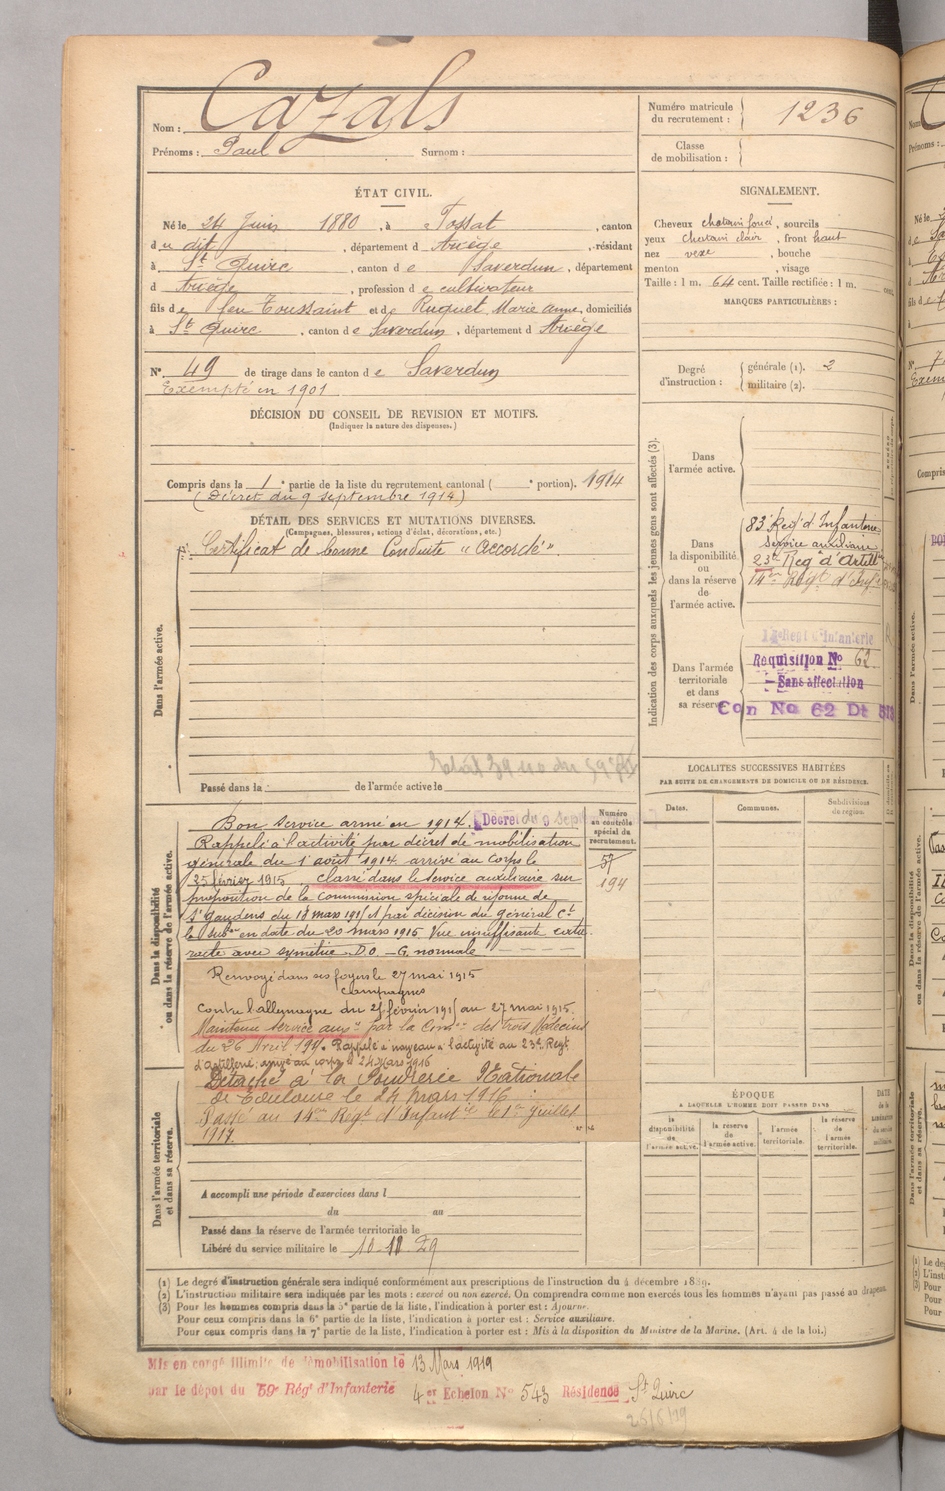 Nom : Cazals
Prénoms : Paul Surnom :
Numéro matricule du recrutement : 1236
Classe de mobilisation :
ÉTAT CIVIL.
Né le 24 Juin 1880, à Tossat, canton
du dit, département d Ariège, résidant
à St Quirc, canton de Saverdun, département
d Ariège, profession de cultivateur
fils de feu Toussaint et de Ruquet, Marie Anne, domiciliés
à St Quirc, canton de Saverdun, département d Ariège
N° 49 de tirage dans le canton de Saverdun
Exempté en 1901
SIGNALEMENT.
Cheveux chatain foncé, sourcils
yeux chatain clair, front haut
nez vexe, bouche
menton, visage
Taille : 1 m. 64 cent. Taille rectifiée : 1 m. cent.
MARQUES PARTICULIÈRES :
Degré d'instruction : générale (1). 2
militaire (2).
DÉCISION DU CONSEIL DE REVISION ET MOTIFS.
(Indiquer la nature des dispenses.)
Compris dans la 1e partie de la liste du recrutement cantonal ( e portion). 1914
(Décret du 9 septembre 1914)
DÉTAIL DES SERVICES ET MUTATIONS DIVERSES.
(Campagnes, blessures, actions d'éclat, décorations, etc.)
Certificat de bonne Conduite "Accordé".
Dans l'armée active.
Passé dans la de l'armée active le
Indication des corps auxquels les jeunes gens sont affectés (3).
Dans l'armée active.
Dans la disponibilité ou dans la réserve de l'armée active.
83e Reg' d'Infanterie
Service auxiliaire
23e Regt d'Artill
14e Regt d'Infie
Dans l'armée territoriale et dans sa réserve
14e Regt d'Infanterie
Requisition No 62
Sans affectation
Con No 62 Dt
LOCALITES SUCCESSIVES HABITÉES
PAR SUITE DE CHANGEMENTS DE DOMICILE OU DE RÉSIDENCE.
Dates. Communes. Subdivisions de région.
Dans la disponibilité ou dans la réserve de l'armée active.
Numéro au contrôle spécial du recrutement.
57
194
Bon Service armé en 1914. Décret du 9 Sept
Rappelé à l'activité par décret de mobilisation
générale du 1er août 1914. arrivé au corps le
25 février 1915 classé dans le service auxiliaire sur
proposition de la Commission spéciale de réforme de
St Gaudens du 18 mars 1915 et par décision du général Ct
la Subon en date du 20 mars 1915 Vue insuffisante
avec D.O. G. normale
Renvoyé dans ses foyers le 27 mai 1915
Campagnes
Contre l'allemagne du 25 février 1915 au 27 mai 1915.
Maintenu Service auxre par la Comon des trois Médecins
du 26 Avril 191. Rappelé à nouveau à l'activité au 23e Regt
d'artillerie; arrivé au corps le 24 Mars 1916
Détaché à la Poudrerie Nationale
de Toulouse le 24 mars 1916
Passé au 14me Regt d'Infantie le 1er Juillet
1917.
Dans l'armée territoriale et dans sa réserve.
A accompli une période d'exercices dans l
du au
Passé dans la réserve de l'armée territoriale le
Libéré du service militaire le 10 11 29
ÉPOQUE
A LAQUELLE L'HOMME DOIT PASSER DANS
la disponibilité de l'armée active. la réserve de l'armée active. l'armée territoriale. la réserve de l'armée territoriale.
DATE de la libération du service militaire.
(1) Le degré d'instruction générale sera indiqué conformément aux prescriptions de l'instruction du 4 décembre 1889.
(2) L'instruction militaire sera indiquée par les mots : exercé ou non exercé. On comprendra comme non exercés tous les hommes n'ayant pas passé au drapeau.
(3) Pour les hommes compris dans la 5e partie de la liste, l'indication à porter est : Ajourné.
Pour ceux compris dans la 6e partie de la liste, l'indication à porter est : Service auxiliaire.
Pour ceux compris dans la 7e partie de la liste, l'indication à porter est : Mis à la disposition du Ministre de la Marine. (Art. 4 de la loi.)
Mis en congé illimité de démobilisation le 13 Mars 1919
par le dépot du 59e Régt d'Infanterie 4er Echelon N° 543 Résidence St Quirc
26/6/19